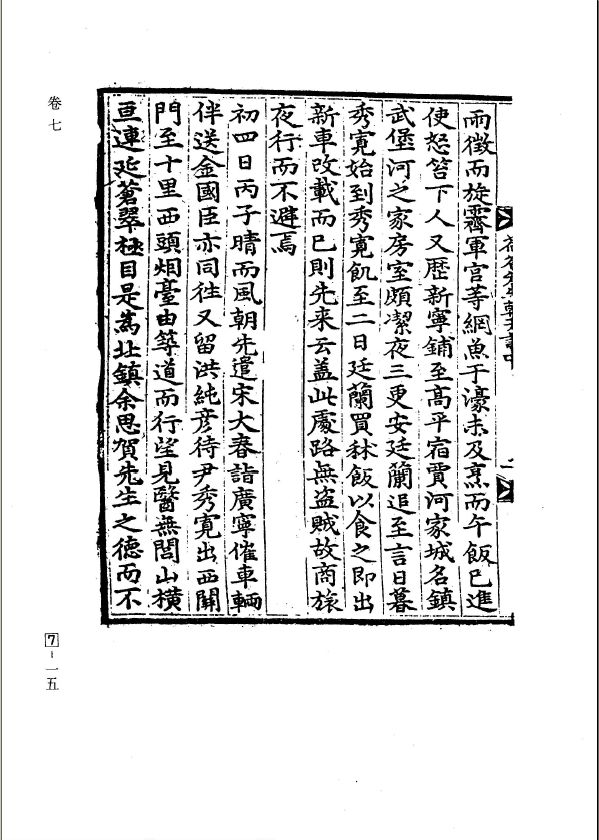 雨徵而旋霽軍官等網魚于濠未及烹而午飯已進
使怒笞下人又歷新寧鋪至高平宿賈河家城名鎮
武堡河之家房室頗潔夜三更安廷蘭追至言日暮
秀寬始到秀寬飢至二日廷蘭買秫飯以食之即出
新車改載而已則先来云盖此處路無盜賊故商旅
夜行而不避焉
初四日丙子晴而風朝先遣宋大春詣廣寧催車輛
伴送金國臣亦同往又留洪純彦待尹秀寬出西關
門至十里西頭烟臺由築道而行望見醫無閭山橫
亘連延蒼翠極目是為北鎮余思賀先生之德而不
卷七
7-一五